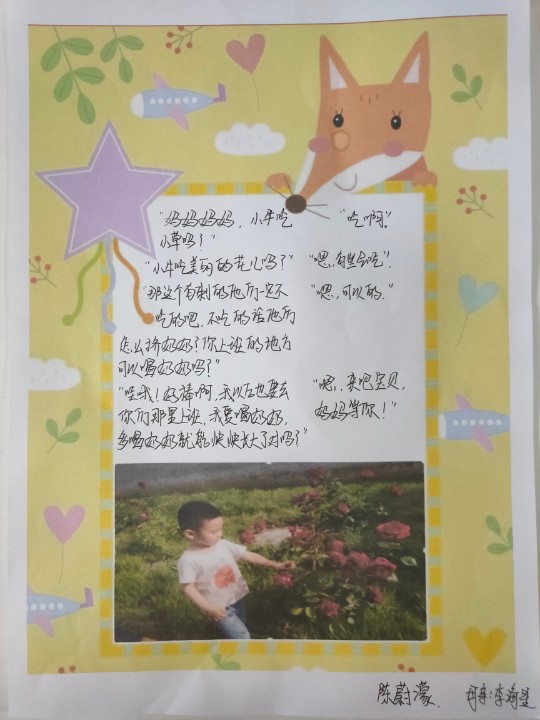 "妈妈妈妈，小牛吃 "吃啊"。
小草吗？"
"小牛吃美丽的花儿吗？" "嗯，有些会吃"！
"那这个有刺的他们一定不 "嗯，可以的."
吃的吧，不吃的话他们
怎么挤奶奶？你上班的地方
可以喝奶奶吗？"
"哇哦！好棒啊，我以后也要去 "嗯，来吧宝贝，
你们那里上班，我要喝奶奶， 妈妈等你！"
多喝奶奶就能快快长大了对吗？"
陈蔚濛 李